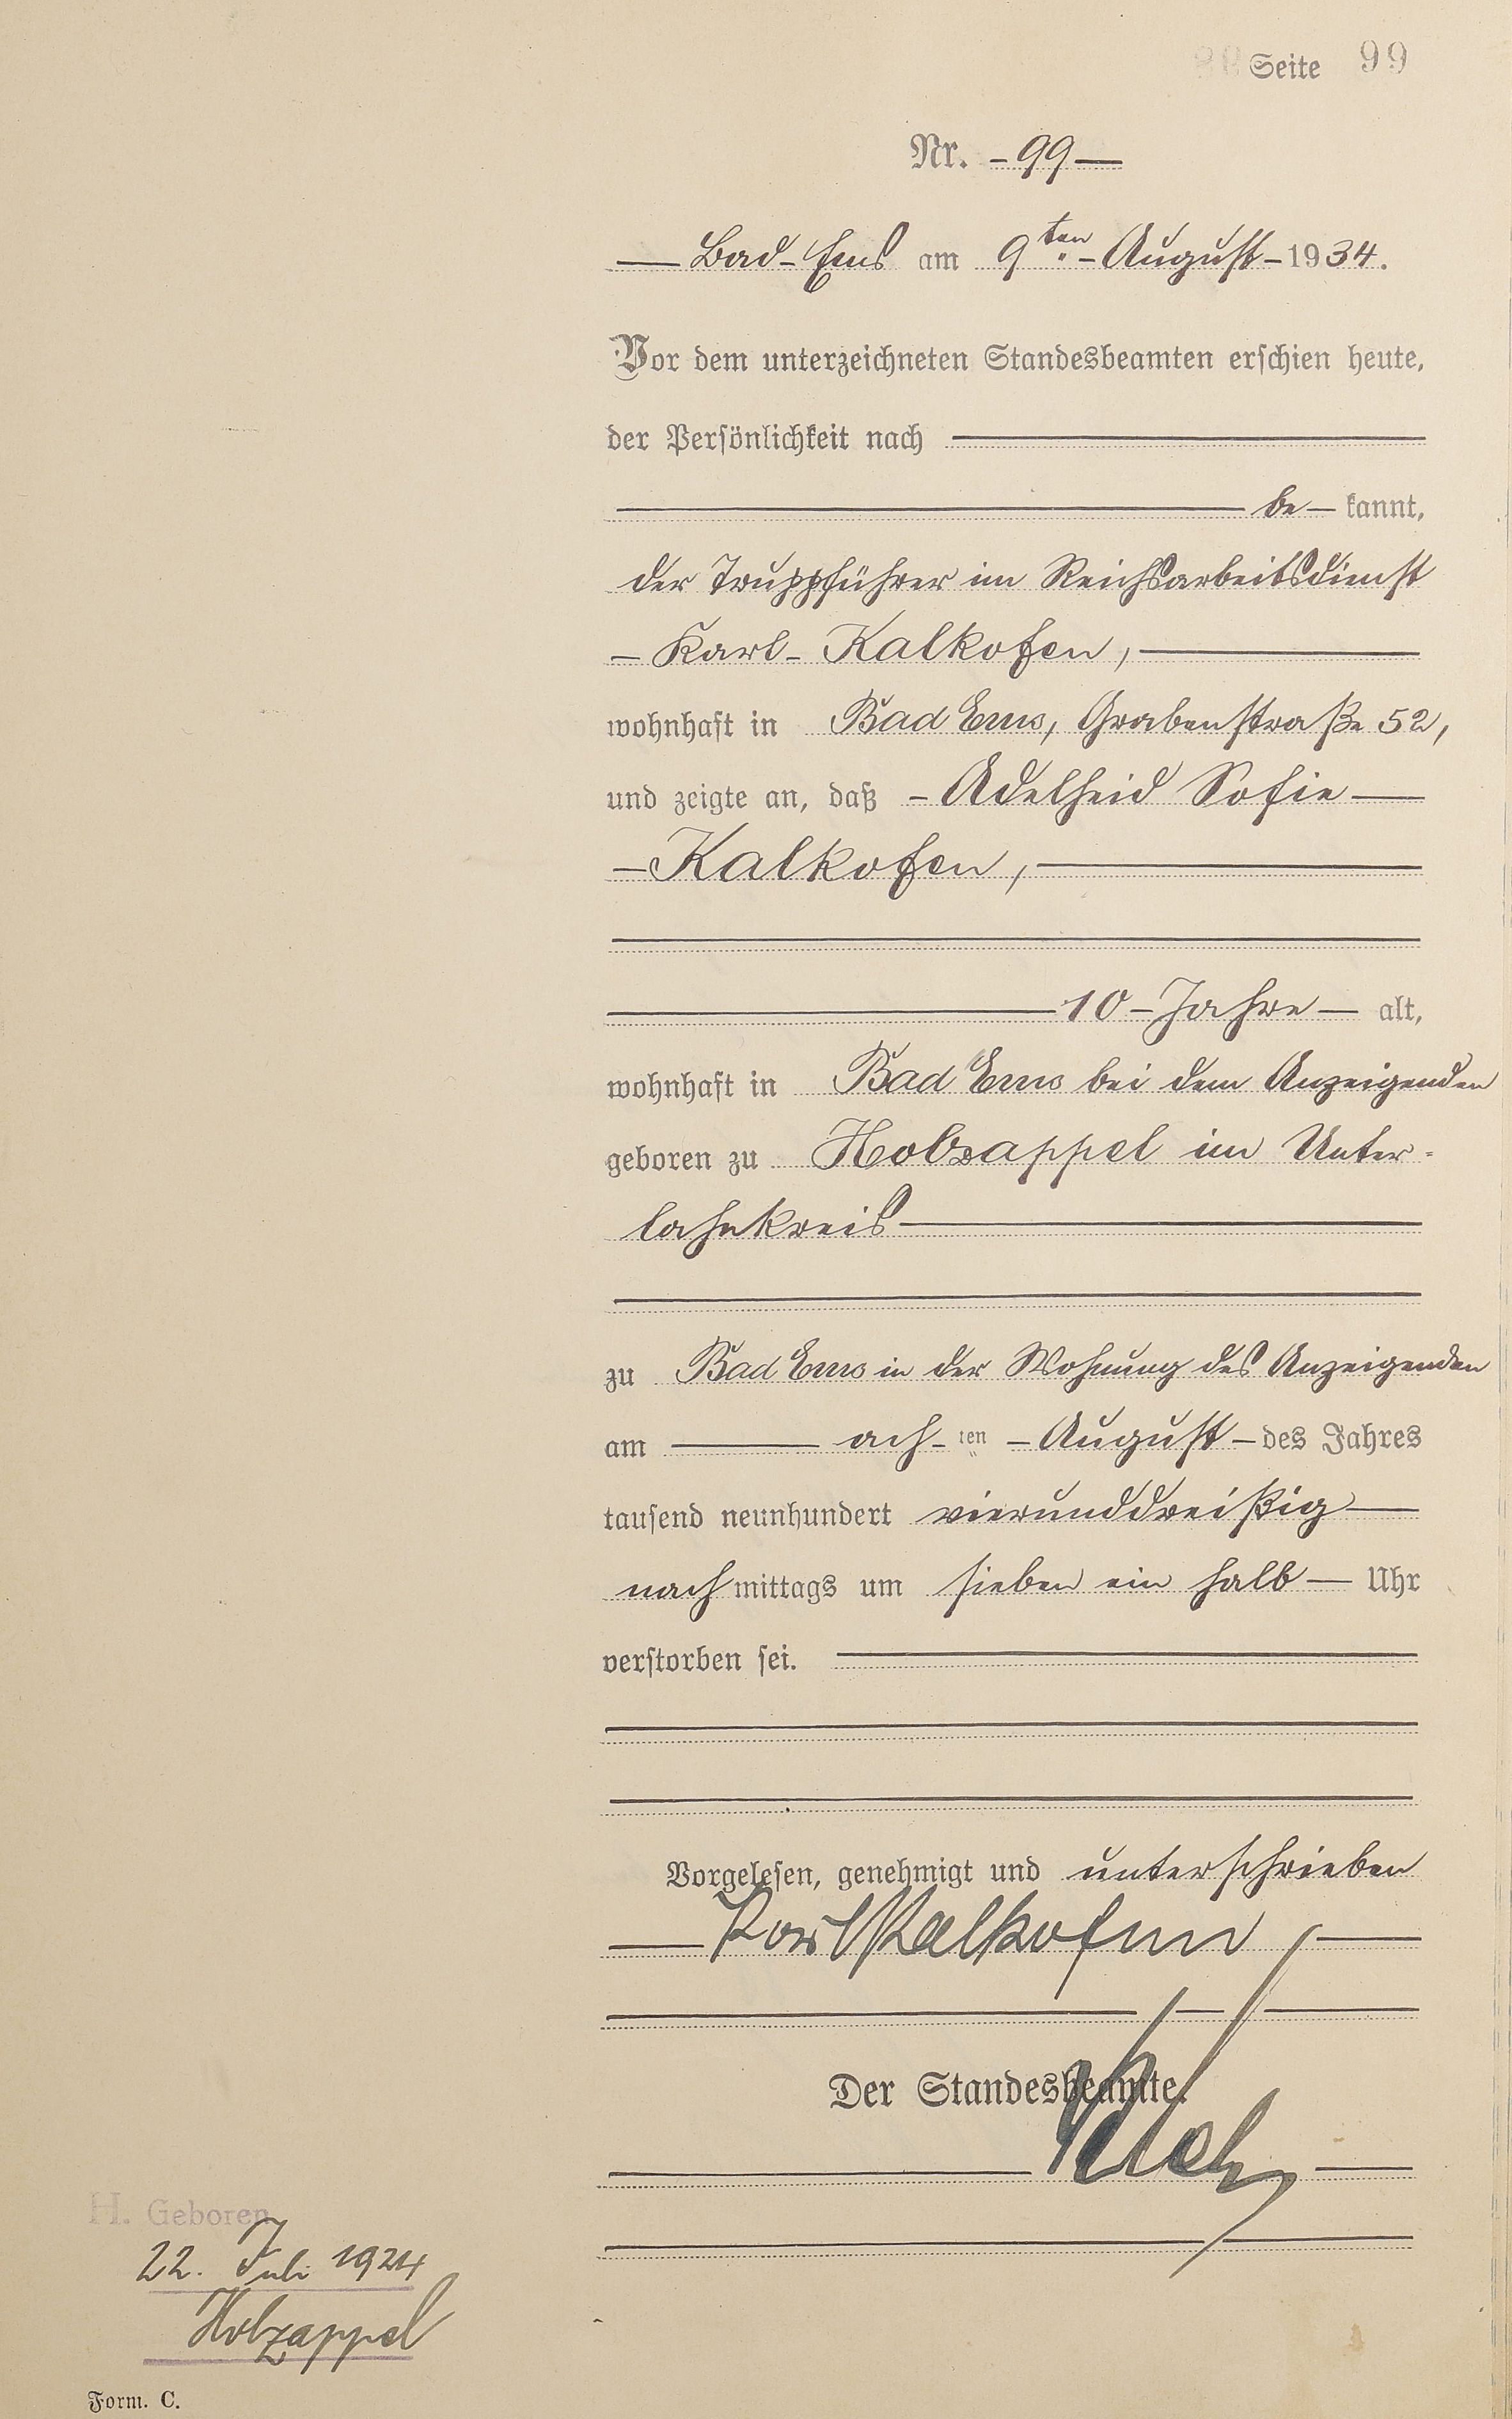 Seite 99
Nr. - 99 -
Bad-Ems am 9ten August 1934.
Vor dem unterzeichneten Standesbeamten erschien heute,
der Persönlichkeit nach
be- kannt,
der Truppführer im Reichsarbeitsdienst
- Karl - Kalkofen,
wohnhaft in Bad Ems, Grabenstraße 52,
und zeigte an, daß - Adelheid Sofie
- Kalkofen,
10 - Jahre - alt,
wohnhaft in Bad Ems bei dem Anzeigenden
geboren zu Holzappel im Unter-
lahnkreis
zu Bad Ems in der Wohnung des Anzeigenden
am ach- ten - August - des Jahres
tausend neunhundert vierunddreißig
nach mittags um sieben ein halb - Uhr
verstorben sei.
Vorgelesen, genehmigt und unterschrieben
Karl Kalkofen
Der Standesbeamte.
H. Geboren
22. Juli 1924
Holzappel
Form. C.